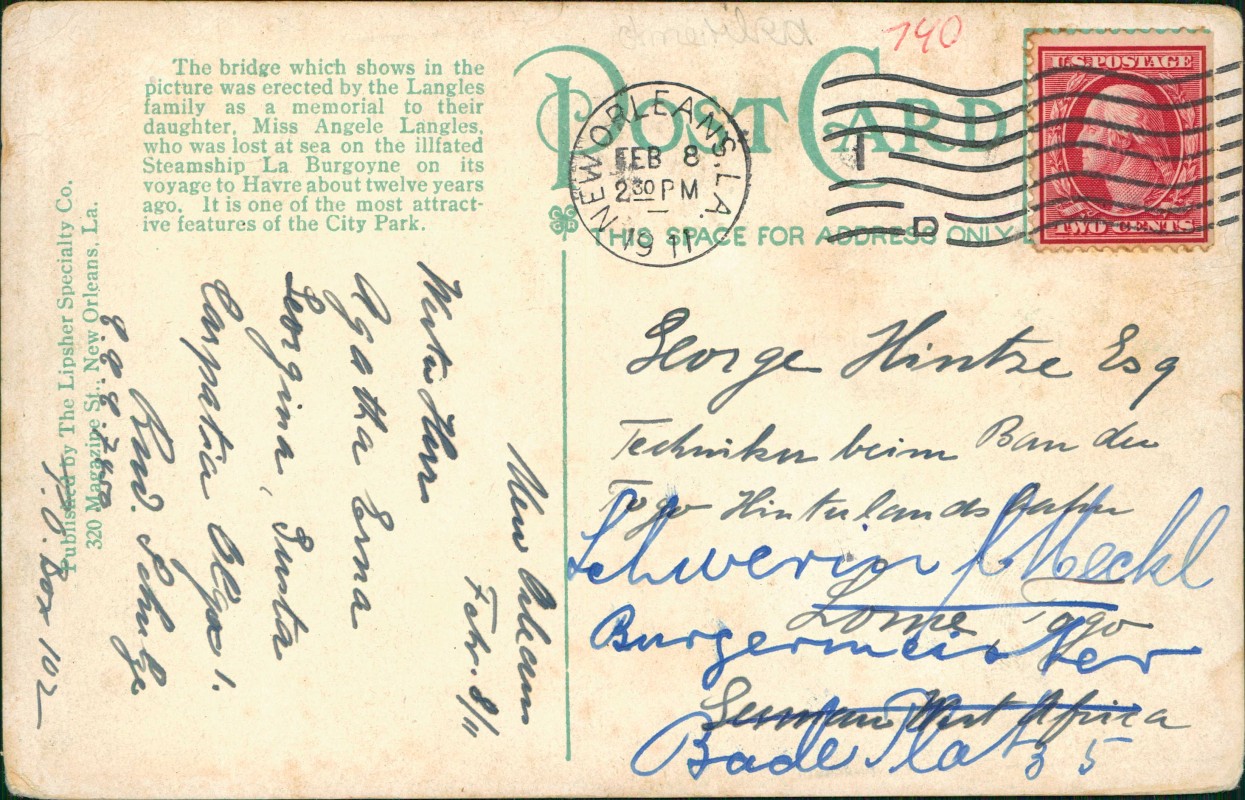 The bridge which shows in the
picture was erected by the Langles
family as a memorial to their
daughter, Miss Angele Langles,
who was lost at sea on the illfated
Steamship La Burgoyne on its
voyage to Havre about twelve years
ago. It is one of the most attract-
ive features of the City Park.
POST CARD
THIS SPACE FOR ADDRESS ONLY
740
NEW ORLEANS, LA.
FEB 8
2 30 PM
1911
D
U.S. POSTAGE
TWO CENTS
George Hintze Esq
Techniker beim Bau der
Togo Hinterlandsbahn
Lome, Togo
German West Africa
Schwerin / Meckl
Burgermeister
Bade Platz 5
New Orleans
Febr. 8/11
Agatha Erna
Georgina, Gusta
Carpatia Olga 1.
Rud. Schulze
P.O. Box 102
Published by The Lipsher Specialty Co.
320 Magazine St., New Orleans, La.